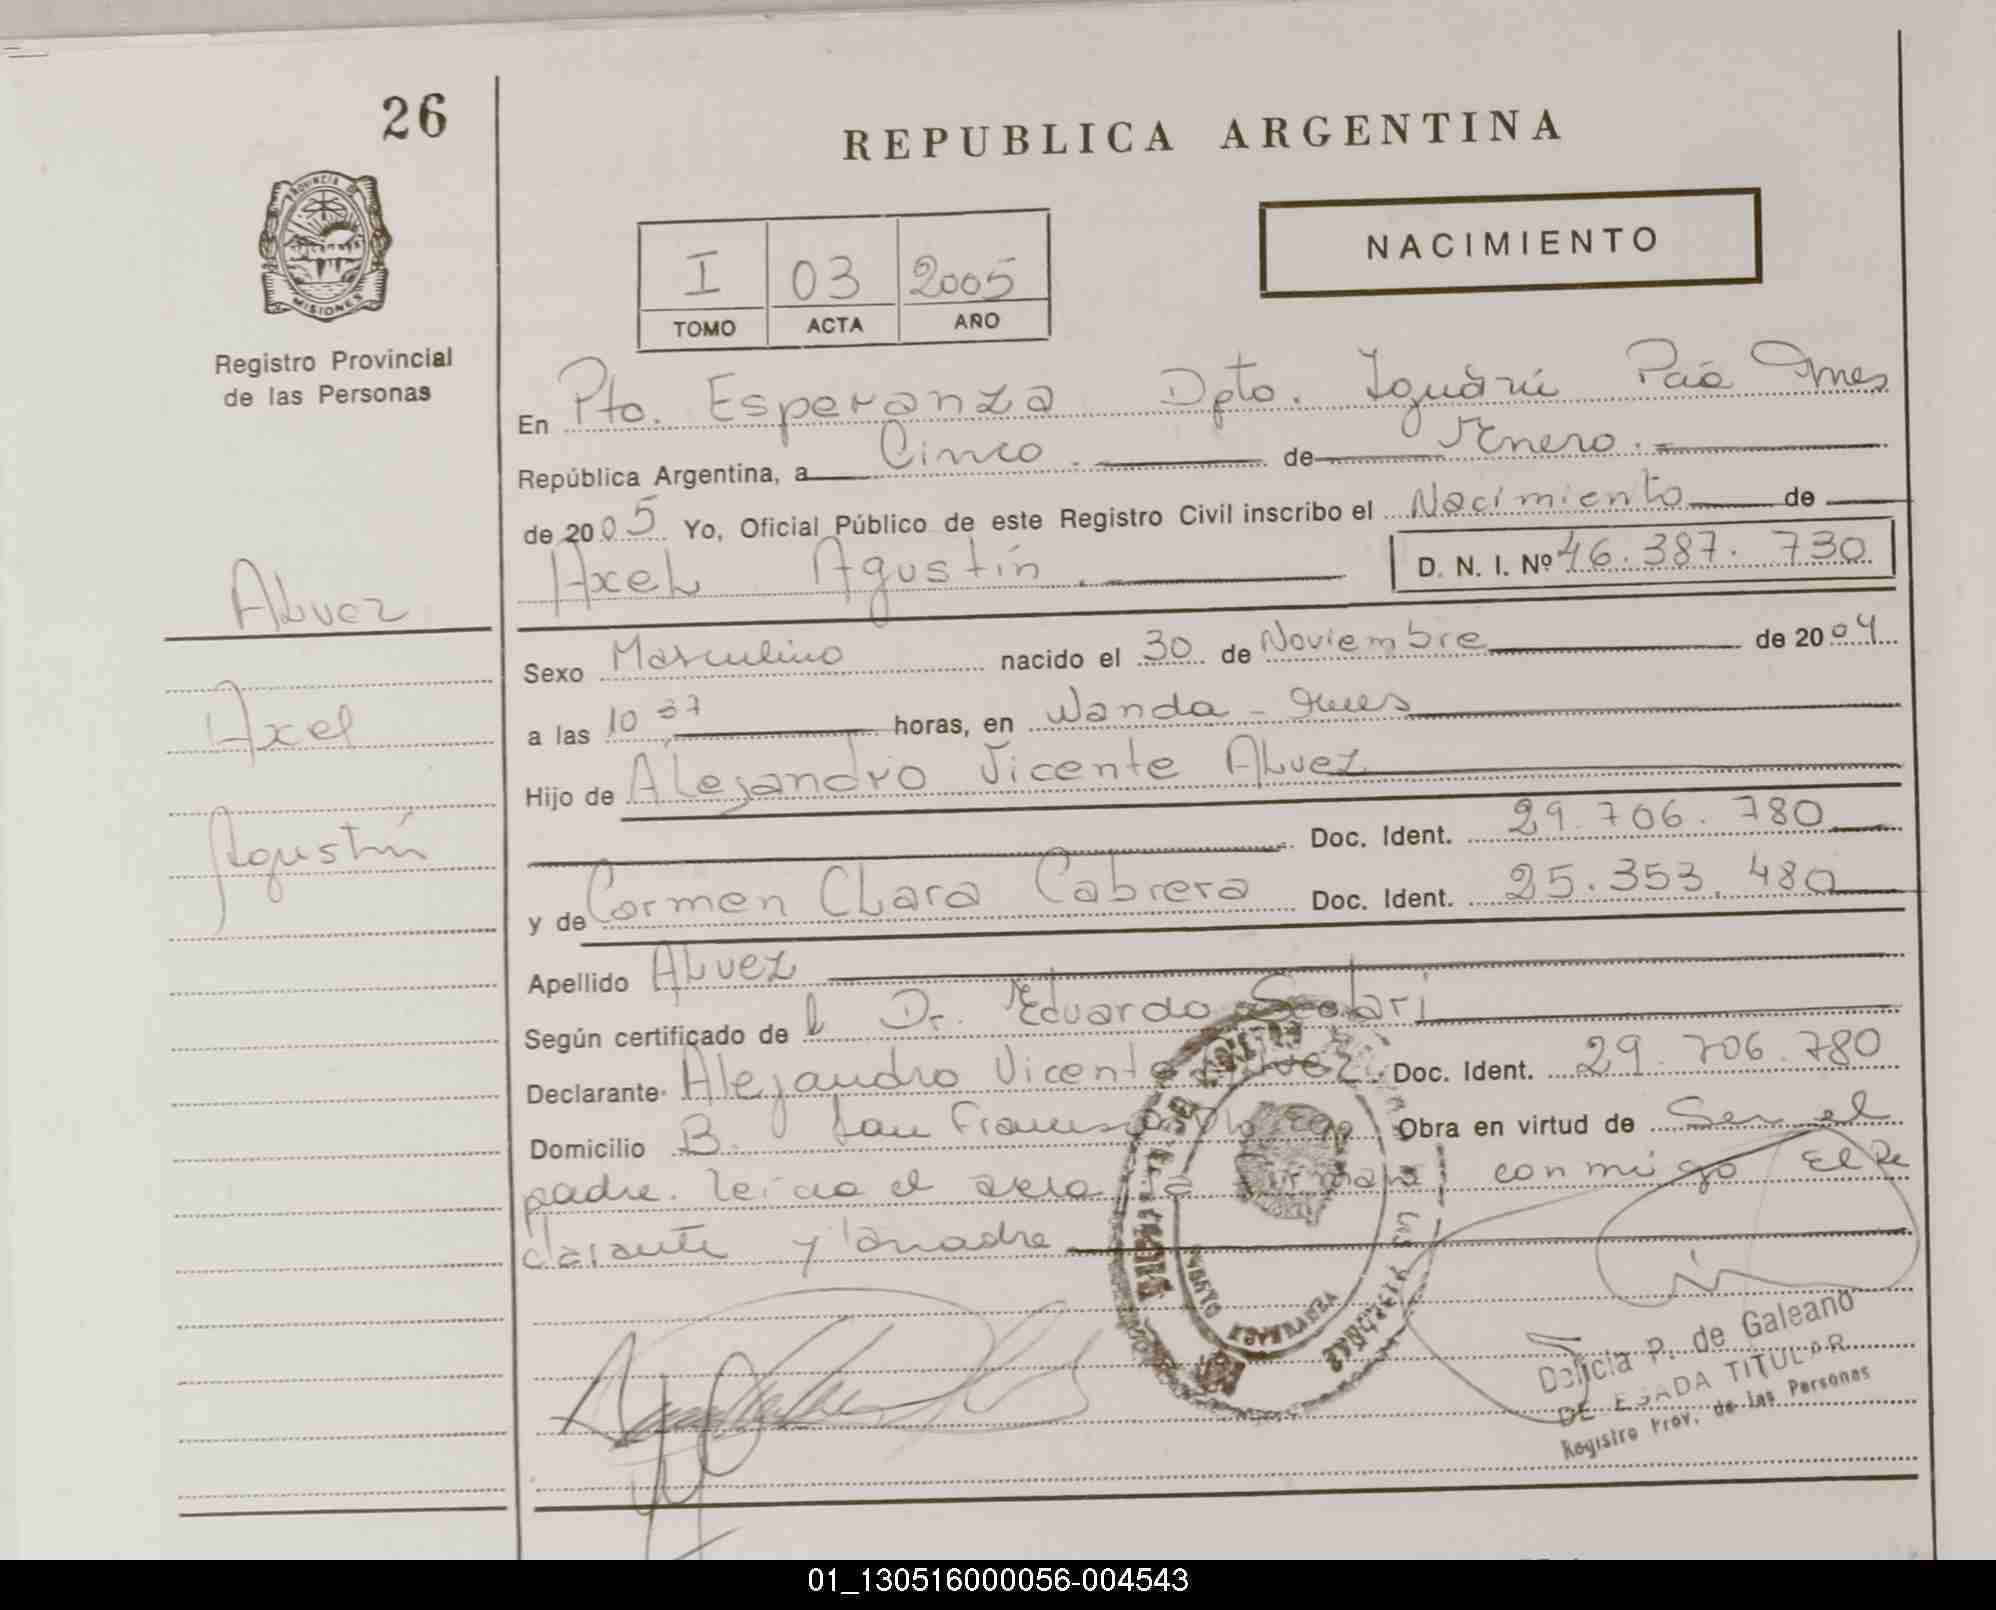 26
REPUBLICA ARGENTINA
PROVINCIA DE
MISIONES
NACIMIENTO
I 03 2005
TOMO ACTA AÑO
Registro Provincial
de las Personas
En Pto. Esperanza Dpto. Iguazú Pcia Mnes
República Argentina, a Cinco de Enero
de 2005 Yo, Oficial Público de este Registro Civil inscribo el Nacimiento de
Axel Agustín D. N. I. Nº 46.387.730
Alvez
Axel
Agustín
Sexo Masculino nacido el 30 de Noviembre de 2004
a las 10 37 horas, en Wanda - Mnes
Hijo de Alejandro Vicente Alvez
Doc. Ident. 29.706.780
y de Carmen Clara Cabrera Doc. Ident. 25.353.480
Apellido Alvez
Según certificado de l Dr. Eduardo Scolari
Declarante Alejandro Vicente Alvez Doc. Ident. 29.706.780
Domicilio B. San Francisco Obra en virtud de Ser el
padre. Leída el acta la firmará conmigo El De
clarante y la madre
Delicia P. de Galeano
DELEGADA TITULAR
Registro Prov. de las Personas
01_130516000056-004543